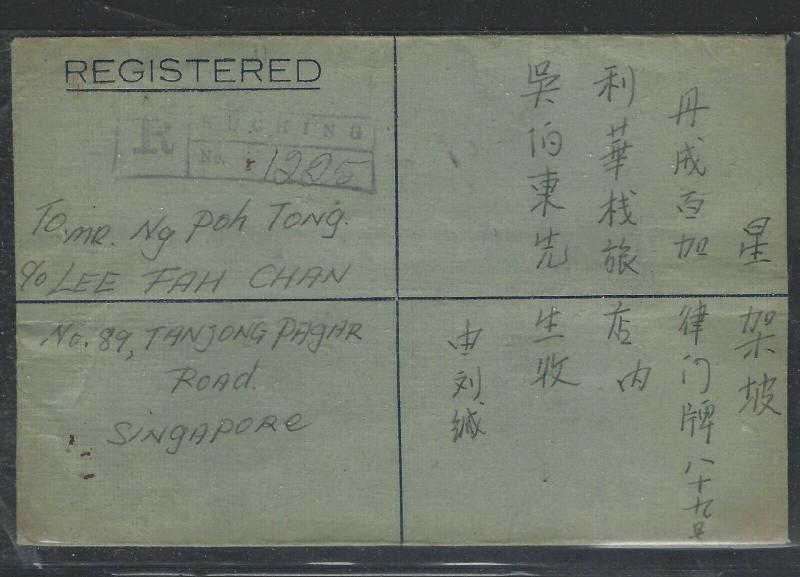 REGISTERED
R KUCHING
No. 1225
To, MR. Ng Poh Tong.
c/o LEE FAH CHAN
No. 89, TANJONG PAGAR
ROAD.
SINGAPORE
星架坡
丹戎百加律门牌八十九号
利華栈旅店内
吳伯東先生收
由刘缄